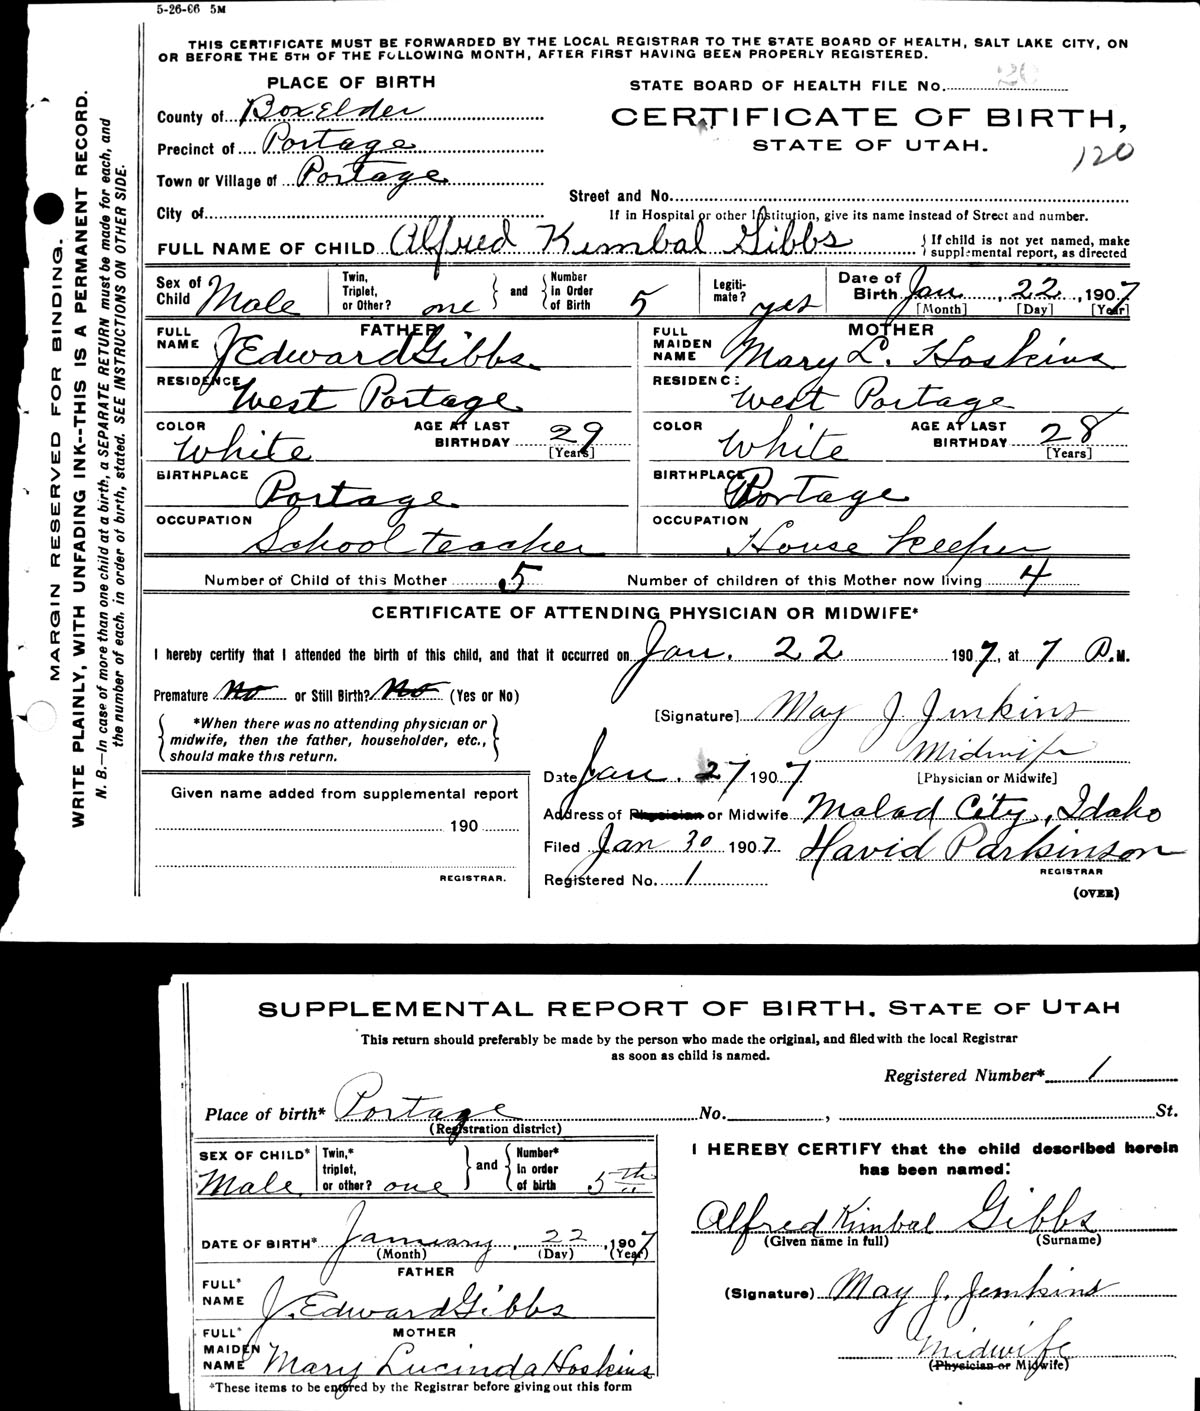 5-26-06 5M
THIS CERTIFICATE MUST BE FORWARDED BY THE LOCAL REGISTRAR TO THE STATE BOARD OF HEALTH, SALT LAKE CITY, ON
OR BEFORE THE 5TH OF THE FOLLOWING MONTH, AFTER FIRST HAVING BEEN PROPERLY REGISTERED.
PLACE OF BIRTH
STATE BOARD OF HEALTH FILE NO.
County of Box Elder
CERTIFICATE OF BIRTH,
Precinct of Portage
STATE OF UTAH.
120
Town or Village of Portage
Street and No.
City of
If in Hospital or other Institution, give its name instead of Street and number.
FULL NAME OF CHILD Alfred Kimbal Gibbs
{ If child is not yet named, make supplemental report, as directed
Sex of Child Male
Twin, Triplet, or Other? one } and { Number In Order of Birth 5
Legiti-mate? yes
Date of Birth Jan 22, 1907
[Month] [Day] [Year]
FATHER
FULL NAME J Edward Gibbs
MOTHER
FULL MAIDEN NAME Mary L. Hoskins
RESIDENCE West Portage
RESIDENCE West Portage
COLOR White AGE AT LAST BIRTHDAY 29 [Years]
COLOR White AGE AT LAST BIRTHDAY 28 [Years]
BIRTHPLACE Portage
BIRTHPLACE Portage
OCCUPATION School teacher
OCCUPATION House keeper
Number of Child of this Mother 5 Number of children of this Mother now living 4
CERTIFICATE OF ATTENDING PHYSICIAN OR MIDWIFE*
I hereby certify that I attended the birth of this child, and that it occurred on Jan. 22 1907, at 7 P.M.
Premature No or Still Birth? No (Yes or No)
{ *When there was no attending physician or midwife, then the father, householder, etc., should make this return. }
[Signature] May J. Jenkins
Midwife
Date Jan. 27 1907
[Physician or Midwife]
Given name added from supplemental report
190
REGISTRAR.
Address of Physician or Midwife Malad City, Idaho
Filed Jan 30 1907. David Parkinson
REGISTRAR
Registered No. 1
(OVER)
MARGIN RESERVED FOR BINDING.
WRITE PLAINLY, WITH UNFADING INK--THIS IS A PERMANENT RECORD.
N. B.—In case of more than one child at a birth, a SEPARATE RETURN must be made for each, and
the number of each, in order of birth, stated. SEE INSTRUCTIONS ON OTHER SIDE.
SUPPLEMENTAL REPORT OF BIRTH, STATE OF UTAH
This return should preferably be made by the person who made the original, and filed with the local Registrar
as soon as child is named.
Registered Number* 1
Place of birth* Portage No. , St.
(Registration district)
SEX OF CHILD* Male
Twin,* triplet, or other? one } and { Number* In order of birth 5th
I HEREBY CERTIFY that the child described herein
has been named:
DATE OF BIRTH* January, 22, 1907
(Month) (Day) (Year)
Alfred Kimbal Gibbs
(Given name in full) (Surname)
FATHER
FULL* NAME J. Edward Gibbs
(Signature) May J. Jenkins
MOTHER
FULL* MAIDEN NAME Mary Lucinda Hoskins
Midwife
(Physician or Midwife)
*These items to be entered by the Registrar before giving out this form